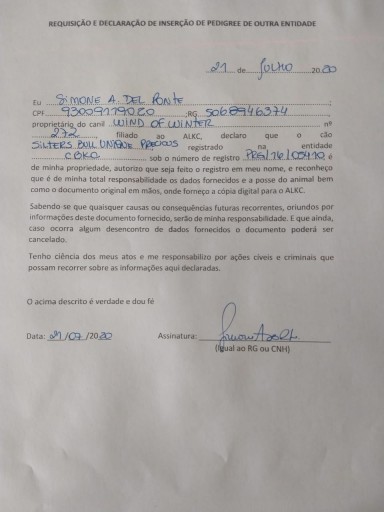 REQUISIÇÃO E DECLARAÇÃO DE INSERÇÃO DE PEDIGREE DE OUTRA ENTIDADE
21 de JULHO 2020
Eu SIMONE A. DEL PONTE
CPF 93009179020 RG 5068946374
proprietário do canil WIND OF WINTER nº
272 filiado ao ALKC, declaro que o cão
SILTERS BULL UNIQUE PRECIOUS registrado na entidade
CBKC sob o número de registro PRG/16/03410 é
de minha propriedade, autorizo que seja feito o registro em meu nome, e reconheço
que é de minha total responsabilidade os dados fornecidos e a posse do animal bem
como o documento original em mãos, onde forneço a cópia digital para o ALKC.
Sabendo-se que quaisquer causas ou consequências futuras recorrentes, oriundos por
informações deste documento fornecido, serão de minha responsabilidade. E que ainda,
caso ocorra algum desencontro de dados fornecidos o documento poderá ser
cancelado.
Tenho ciência dos meus atos e me responsabilizo por ações cíveis e criminais que
possam recorrer sobre as informações aqui declaradas.
O acima descrito é verdade e dou fé
Data: 21/07/2020 Assinatura:
(Igual ao RG ou CNH)